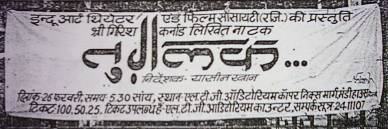 इन्दू आर्ट थियेटर एंड फिल्म सोसायटी (रजि.) की प्रस्तुति
श्री गिरिश कर्नाड लिखित नाटक
तुग़लक...
निदेशक- यासीन खान
दिनांक 26 फरवरी, समय 5.30 सांय, स्थान एल.टी.जी ऑडिटोरियम कॉपर निक्स मार्ग, मंडी हाऊस
टिकट 100, 50, 25. टिकट उपलब्ध है- एल.टी.जी. ऑडिटोरियम काउन्टर, सम्पर्क सूत्र 2411107